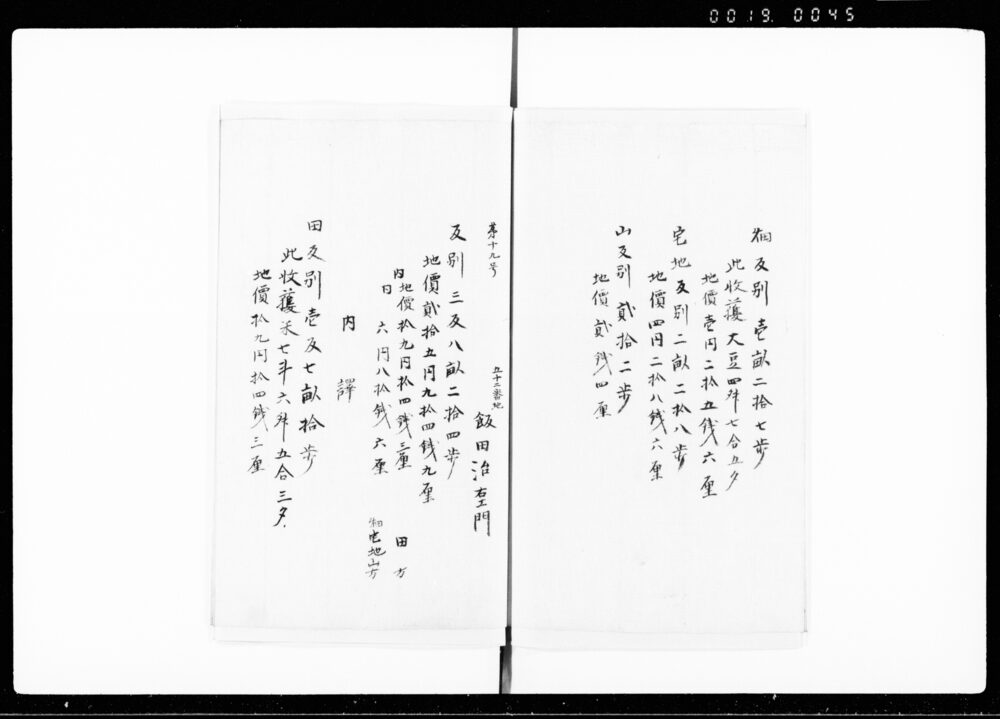 0019.0045
畑反別壱畝二拾七歩
此收穫大豆四舛七合五夕
地價壱円二拾五銭六厘
宅地反別二畝二拾八歩
地價四円二拾八銭六厘
山反別貳拾二歩
地價貳銭四厘
第十九号
五十二番地
飯田治右エ門
反別三反八畝二拾四歩
地價貳拾五円九拾四銭九厘
内地價拾九円拾四銭三厘 田方
日六円八拾銭六厘 畑宅地山方
内譯
田反別壱反七畝拾歩
此收穫米七斗六舛五合三夕
地價拾九円拾四銭三厘